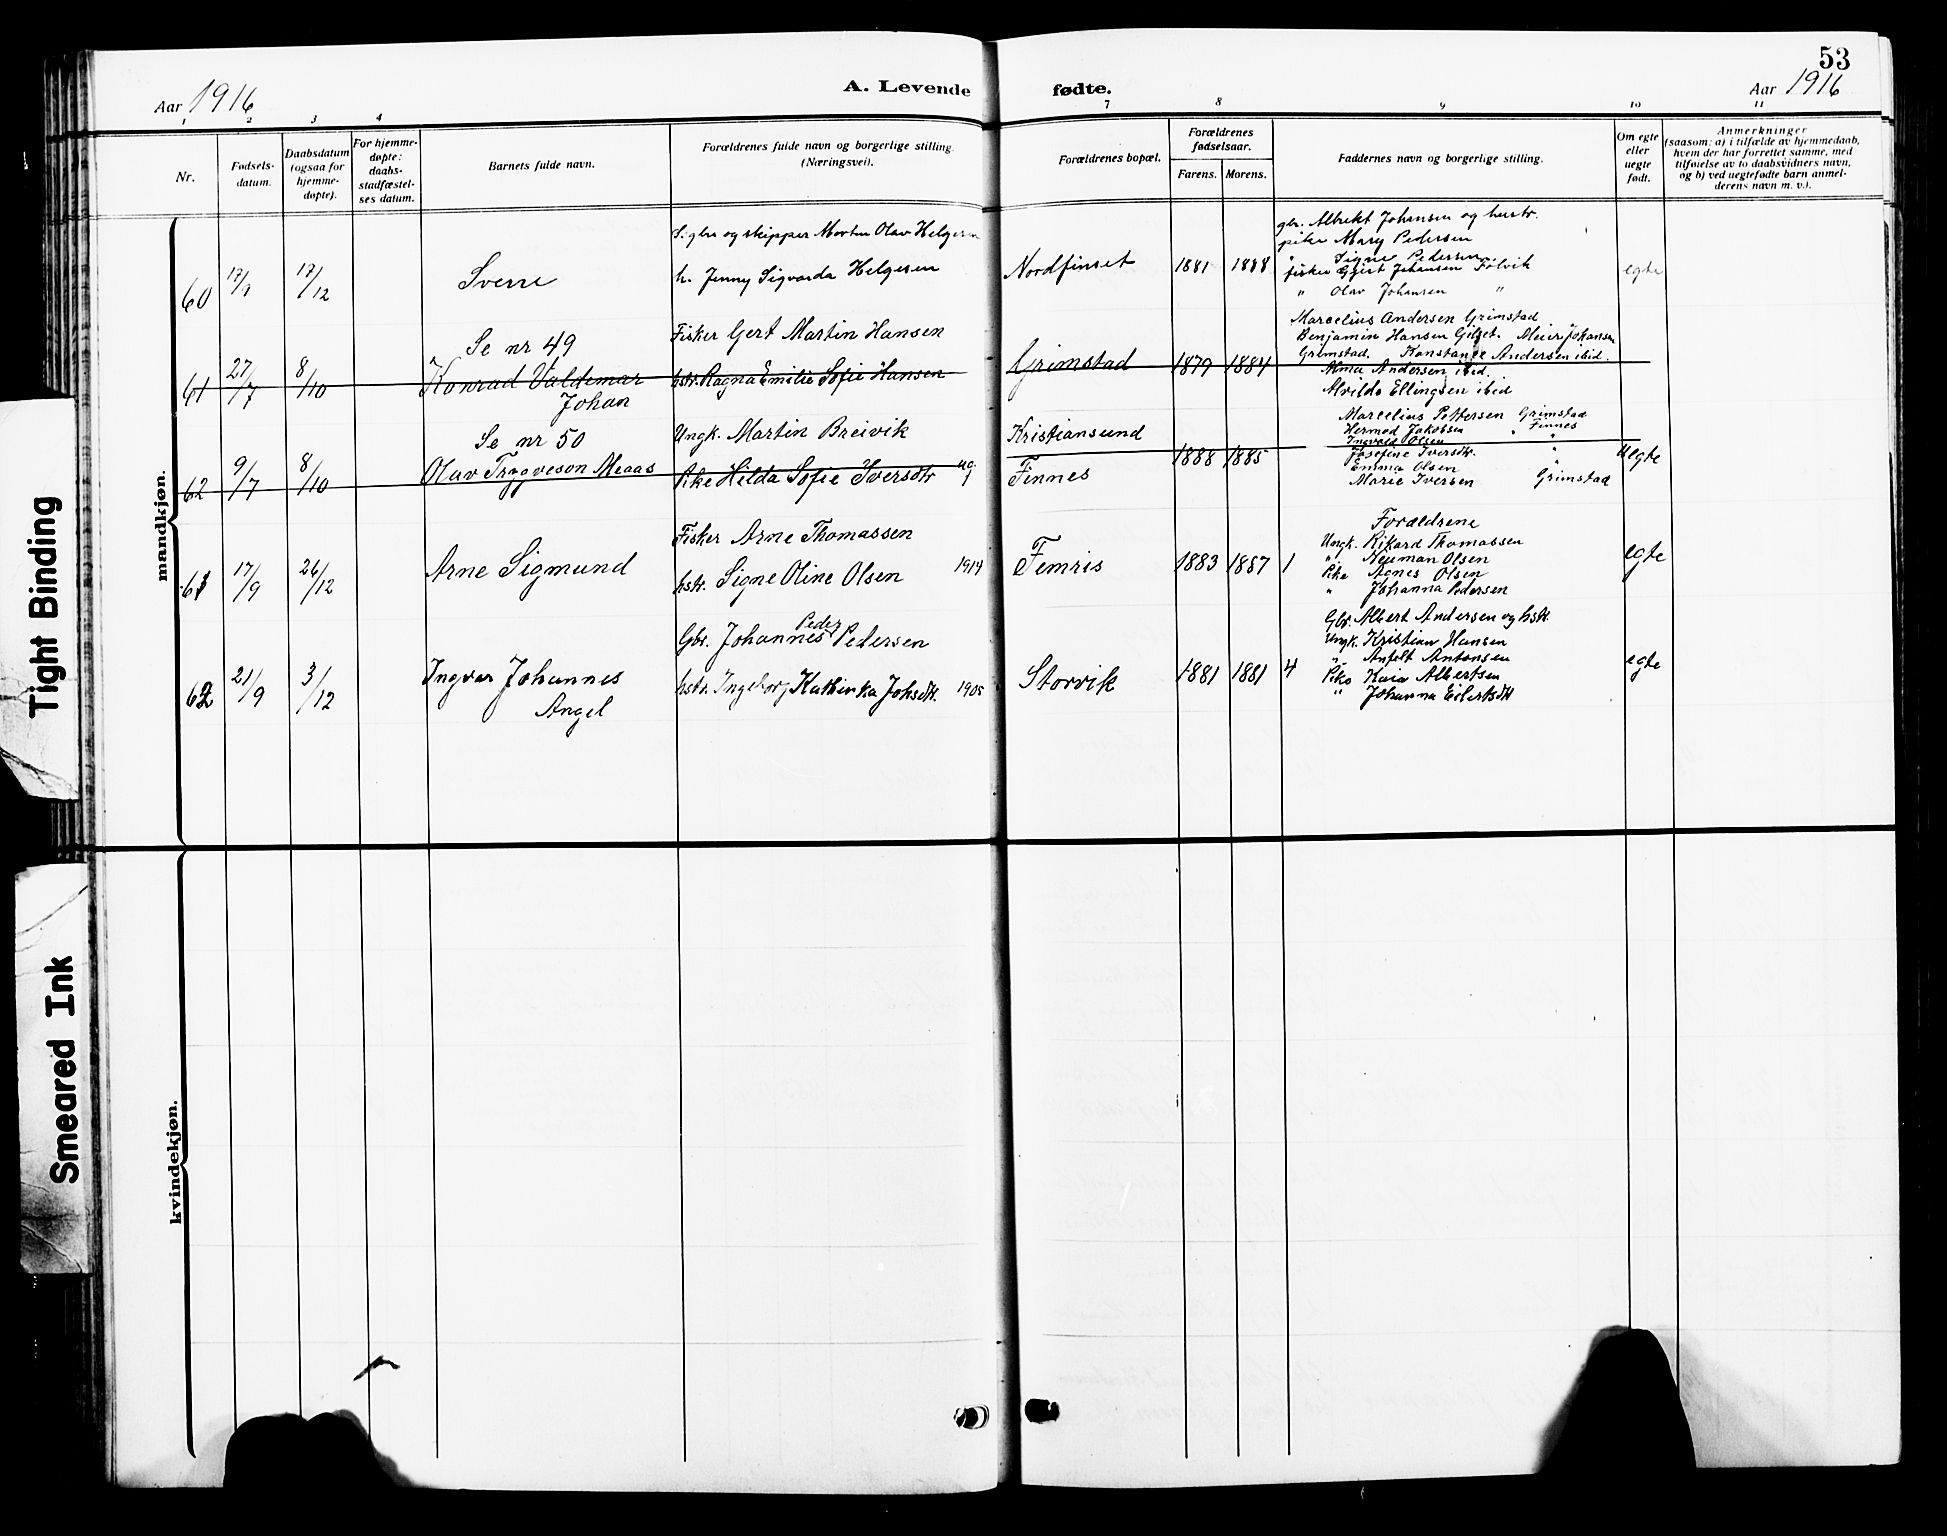 53
Aar 1916
A. Levende fødte.
Aar 1916
1 2 3 4 7 8 9 10 11
Nr.
Fødsels-
datum.
Daabsdatum
(ogsaa for
hjemme-
døpte).
For hjemme-
døpte:
daabs-
stadfæstel-
ses datum.
Barnets fulde navn.
Forældrenes fulde navn og borgerlige stilling.
(Næringsvei).
Forældrenes bopæl.
Forældrenes
fødselsaar.
Farens. Morens.
Faddernes navn og borgerlige stilling.
Om egte
eller
uegte
født.
Anmerkninger
(saasom: a) i tilfælde av hjemmedaab,
hvem der har forrettet samme, med
tilføielse av to daabsvidners navn,
og b) ved uegtefødte barn anmel-
derens navn m. v.).
mandkjøn.
60 17/9 17/12 Sverre
og skipper Morten Olav Helgesen
h. Jenny Sigvarda Helgesen
Nordfinset 1881 1888
gbr. Albrekt Johansen og hustr.
pike Mary Pedersen
" Signe Pedersen
fisker Johansen
" Olav Johansen "
egte
Se nr 49
61 27/7 8/10 Konrad Valdemar
Johan
Fisker Gert Martin Hansen
hstr. Ragna Emilie Sofie Hansen
Grimstad 1879 1884
Marcelius Andersen Grimstad
Benjamin Hansen Gilset. Meier Johansen
Grimstad. Konstance Andersen ibid.
Alma Andersen ibid.
Alvilde Ellingsen ibid
Se nr 50
62 9/7 8/10 Olav Trygveson Meaas
Ungk. Martin Breivik
Pike Hilda Sofie Iversdtr ug
Kristiansund
Finnes
1888 1885
Marcelius Pettersen Grimstad
Hermod Jakobsen " Finnes
Ingvald Olsen "
Josefine Iversdtr. "
Emma Olsen "
Marie Iversen Grimstad
Uegte
61 17/9 26/12 Arne Sigmund
Fisker Arne Thomassen
hstr. Signe Oline Olsen 1914
Femris 1883 1887 1
Forældrene
Ungk. Rikard Thomassen
" Neuman Olsen
Pike Agnes Olsen
" Johanna Pedersen
egte
62 21/9 3/12 Ingvar Johannes
Angel
Gbr. Johannes Peder Pedersen
hstr. Ingeborg Kathinka Johsdtr. 1905
Storvik 1881 1881 4
Gbr. Albert Andersen og hstr.
Ungk. Kristian Hansen
" Antonsen
Pike Kaia Albertsen
" Johanna Eilertsdtr
egte
kvindekjøn.
Tight Binding
Smeared Ink